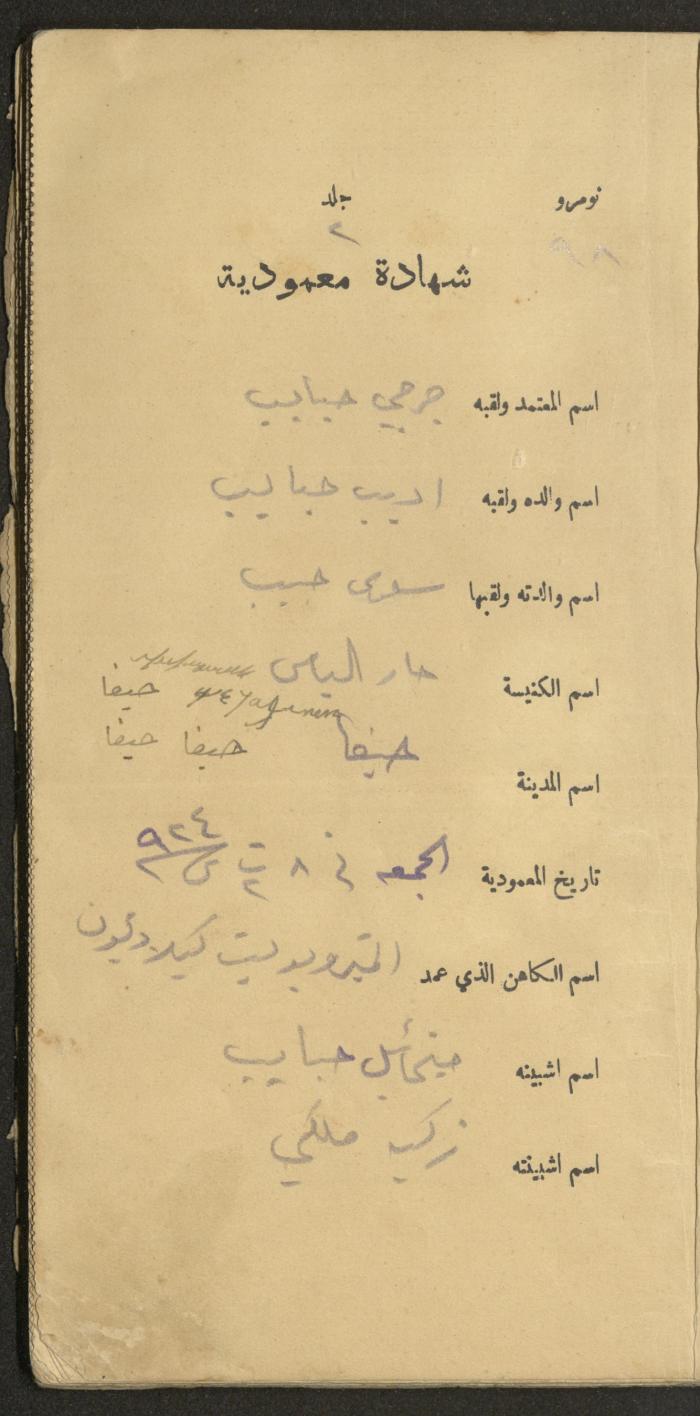 نومرو جلد
٩٨ ٢
شهادة معمودية
اسم المعتمد ولقبه جرجي حبايب
اسم والده ولقبه اديب حبايب
اسم والدته ولقبها سلوى حبيب
اسم الكنيسة مار الياس
حيفا
اسم المدينة حيفا حيفا حيفا
تاريخ المعمودية الجمعه في ٨ ت٢ س ٩٢٤
اسم الكاهن الذي عمد المتروبوليت كيلاديون
اسم اشبينه ميخائيل حبايب
اسم اشبينته زكيه ملكي